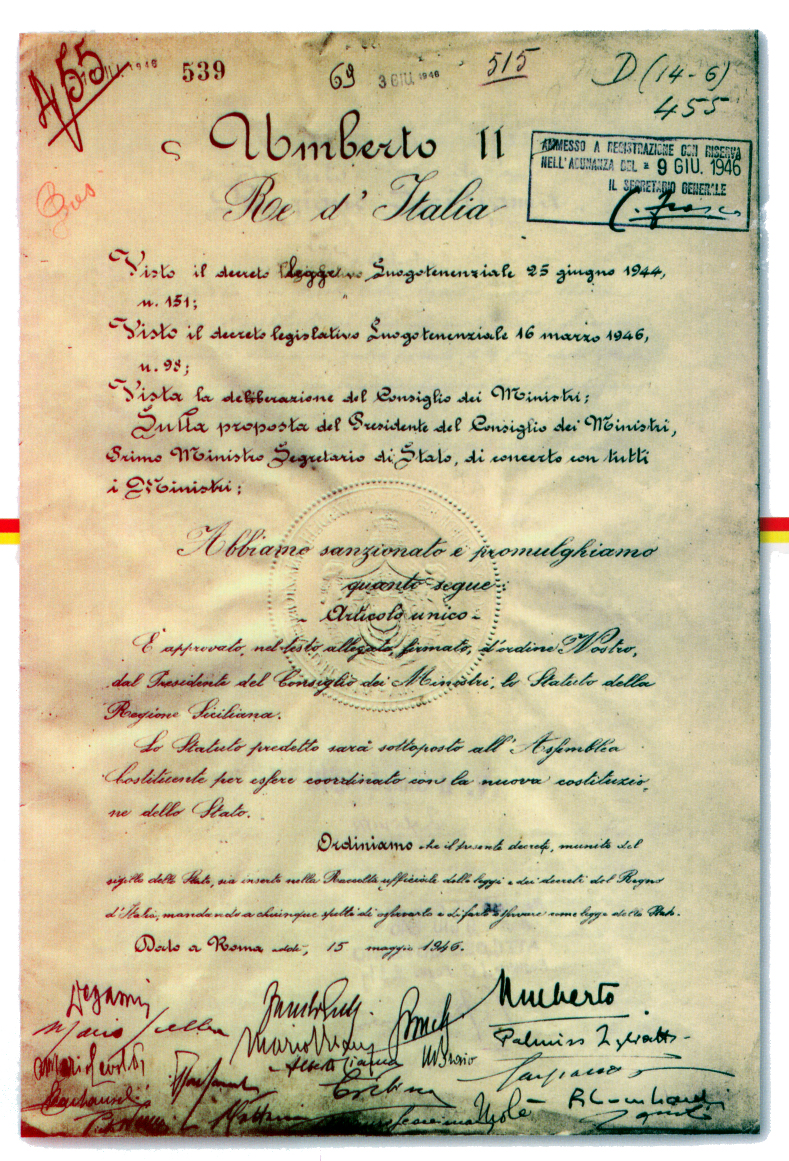 455
GIU. 1946
539
69
3 GIU 1946
515
D (14-6)
455
Umberto II
AMMESSO A REGISTRAZIONE CON RISERVA
NELL'ADUNANZA DEL 9 GIU. 1946
IL SEGRETARIO GENERALE
Re d'Italia
Visto il decreto legge Luogotenenziale 25 giugno 1944,
n. 151;
Visto il decreto legislativo Luogotenenziale 16 marzo 1946,
n. 98;
Vista la deliberazione del Consiglio dei Ministri;
Sulla proposta del Presidente del Consiglio dei Ministri,
Primo Ministro Segretario di Stato, di concerto con tutti
i Ministri;
Abbiamo sanzionato e promulghiamo
quanto segue:
- Articolo unico -
È approvato, nel testo allegato, firmato, d'ordine Nostro,
dal Presidente del Consiglio dei Ministri, lo Statuto della
Regione Siciliana.
Lo Statuto predetto sarà sottoposto all'Assemblea
Costituente per essere coordinato con la nuova costituzio,
ne dello Stato.
Ordiniamo che il presente decreto, munito del
sigillo dello Stato, sia inserto nella Raccolta ufficiale delle leggi e dei decreti del Regno
d'Italia, mandando a chiunque spetti di osservarlo e di farlo osservare come legge dello Stato.
Dato a Roma addì, 15 maggio 1946.
Degasperi
Umberto
Mario Scelba
Palmiro Togliatti